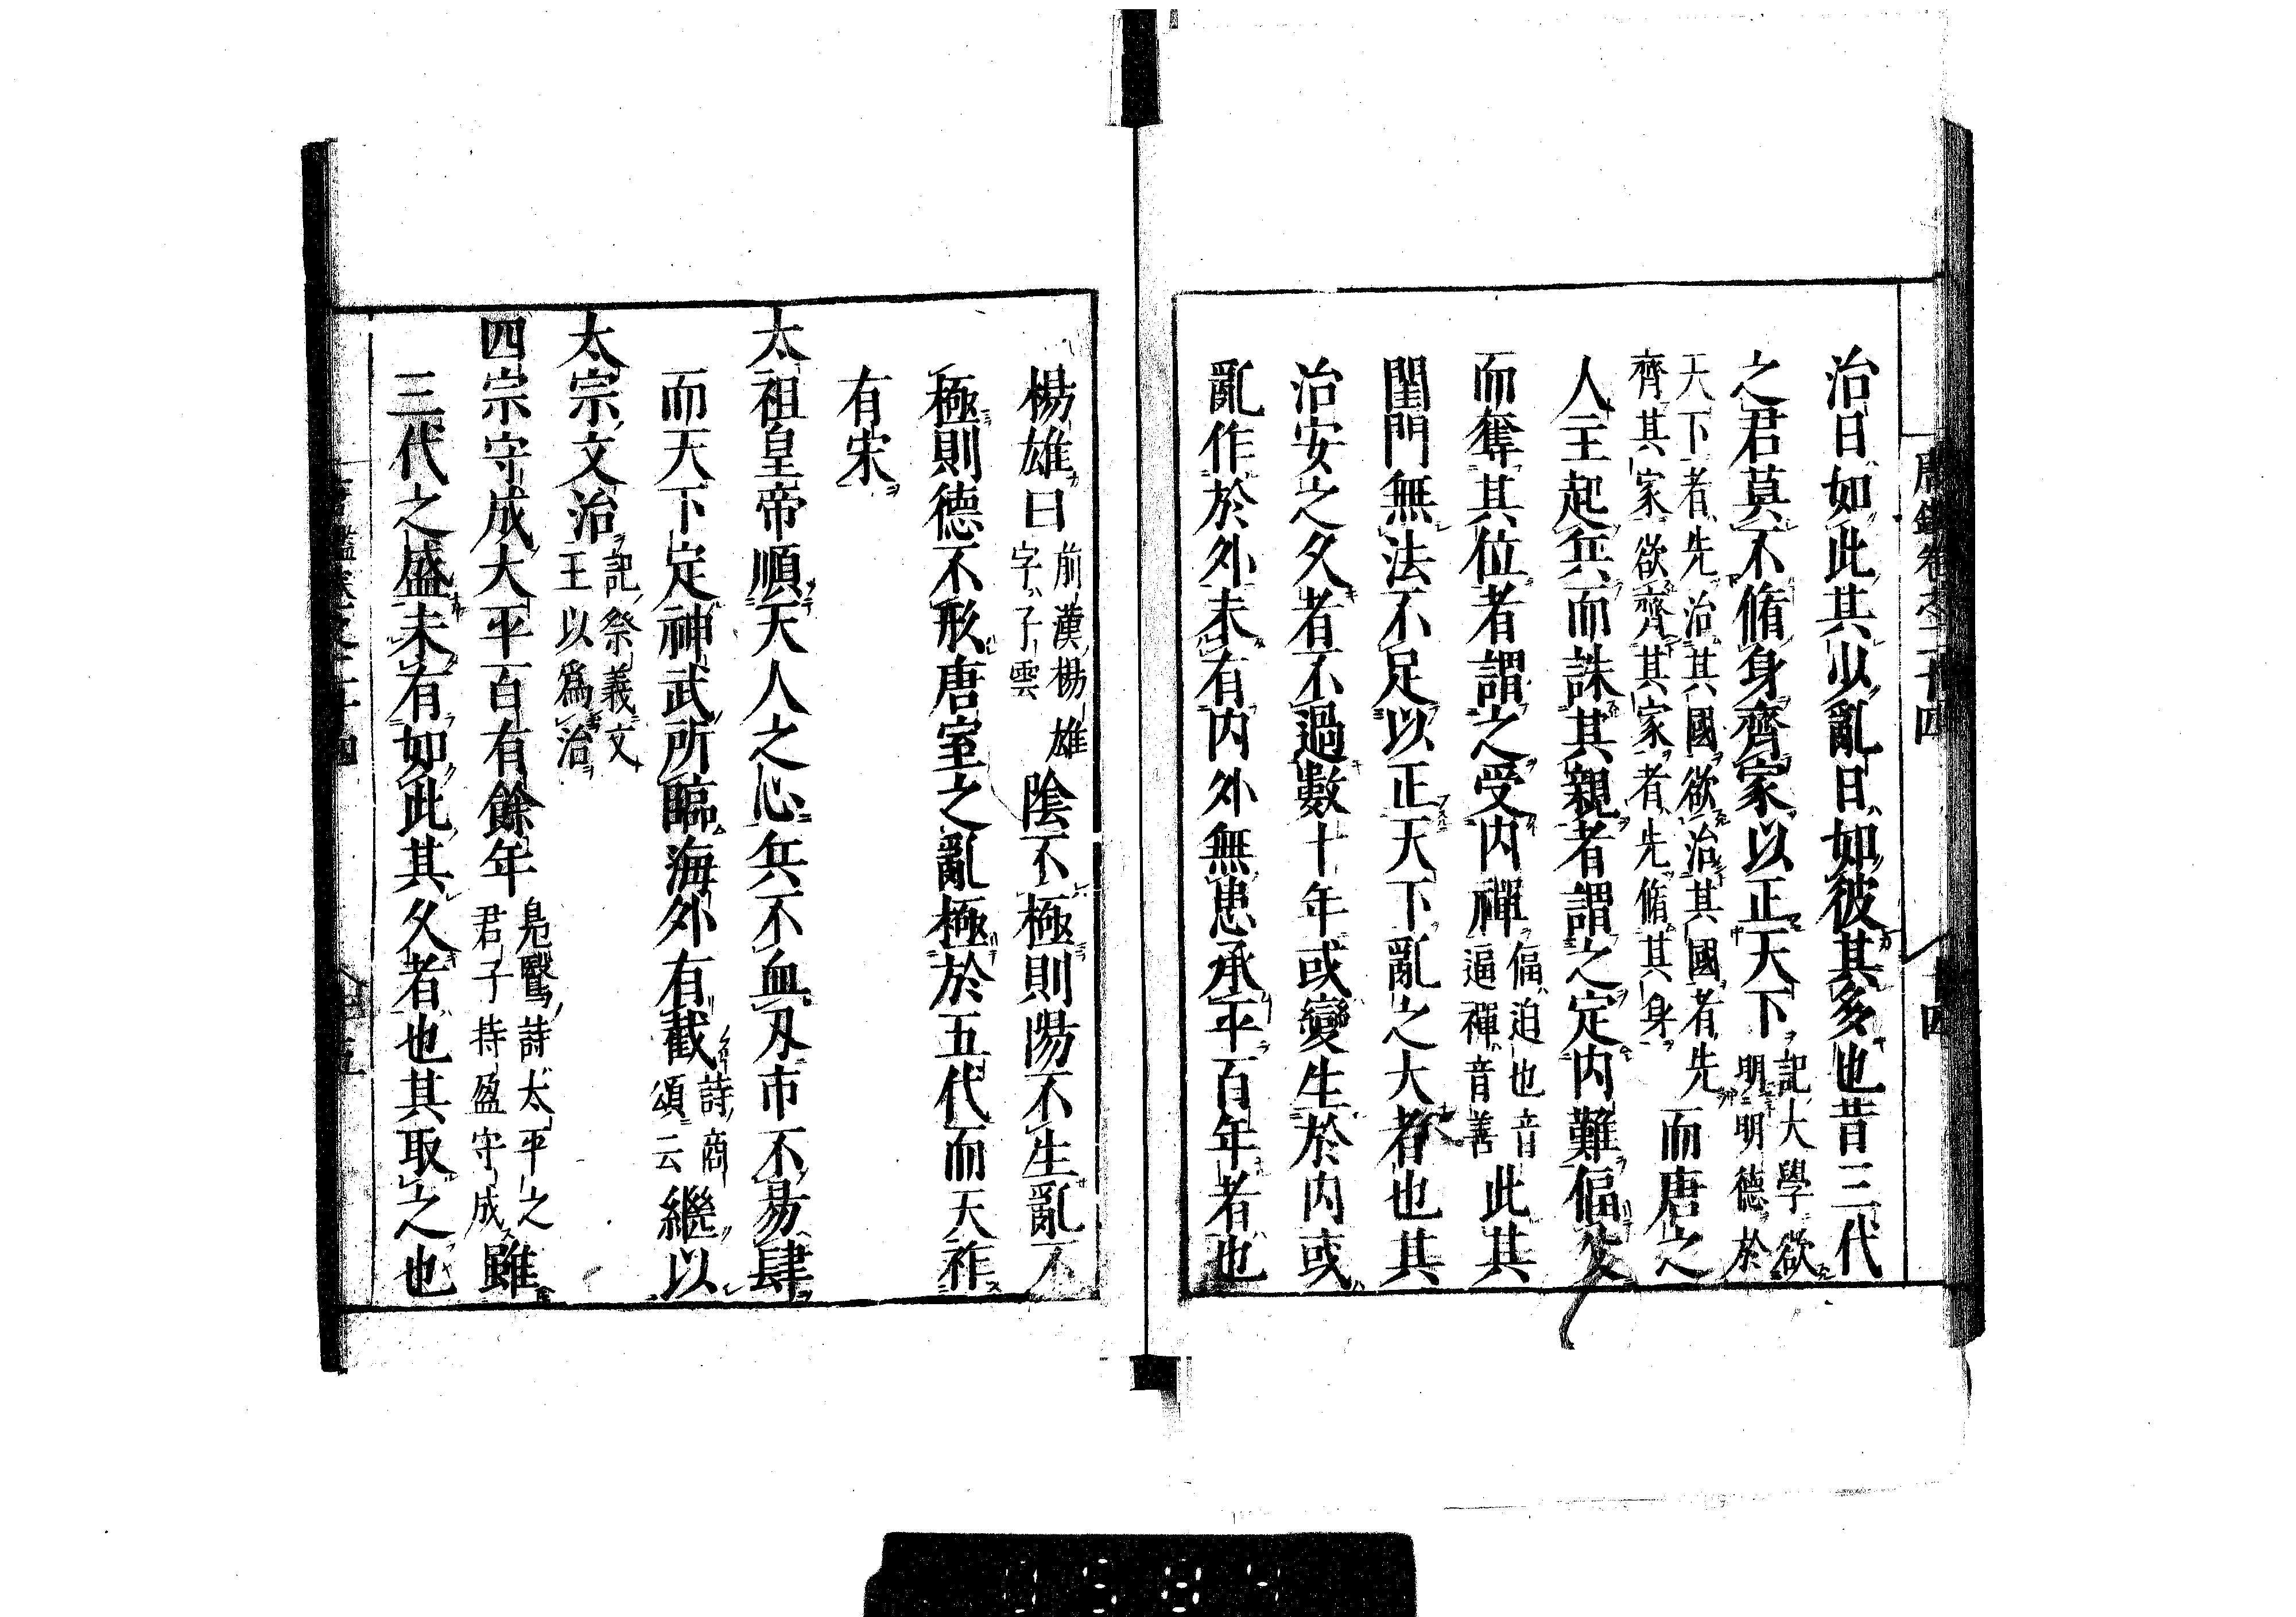 唐鑑卷之二十四
十四
治日如此其以亂日如彼其多也昔三代
之君莫不脩身齊家以正天下記大學欲
明明德於
天下者先治其國欲治其國者先
齊其家欲齊其家者先脩其身而唐之
人主起兵而誅其親者謂之定內難偪父
而奪其位者謂之受內禪偪迫也音
逼禪音善此其
閨門無法不足以正天下亂之大者也其
治安之久者不過數十年或變生於內或
亂作於外未有內外無患承平百年者也
楊雄曰前漢楊雄
字子雲陰不極則陽不生亂不
極則德不形唐室之亂極於五代而天祚
有宋
太祖皇帝順天人之心兵不血刃市不易肆
而天下定神武所臨海外有截詩商
頌云繼以
太宗文治記祭義文
王以爲治
四宗守成太平百有餘年鳧鷖詩太平之
君子持盈守成雖
三代之盛未有如此其久者也其取之也